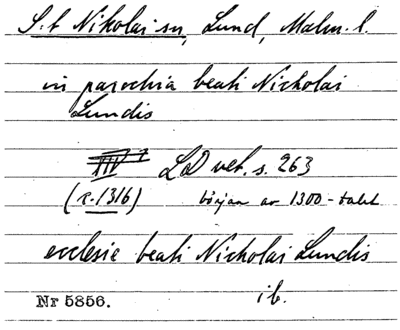 S:t Nikolai sn, Lund, Malm. l.
in parochia beati Nicholai
Lundis
LD vet. s. 263
(c. 1316) början av 1300-talet
ecclesie beati Nicholai Lundis
ib.
Nr 5856.